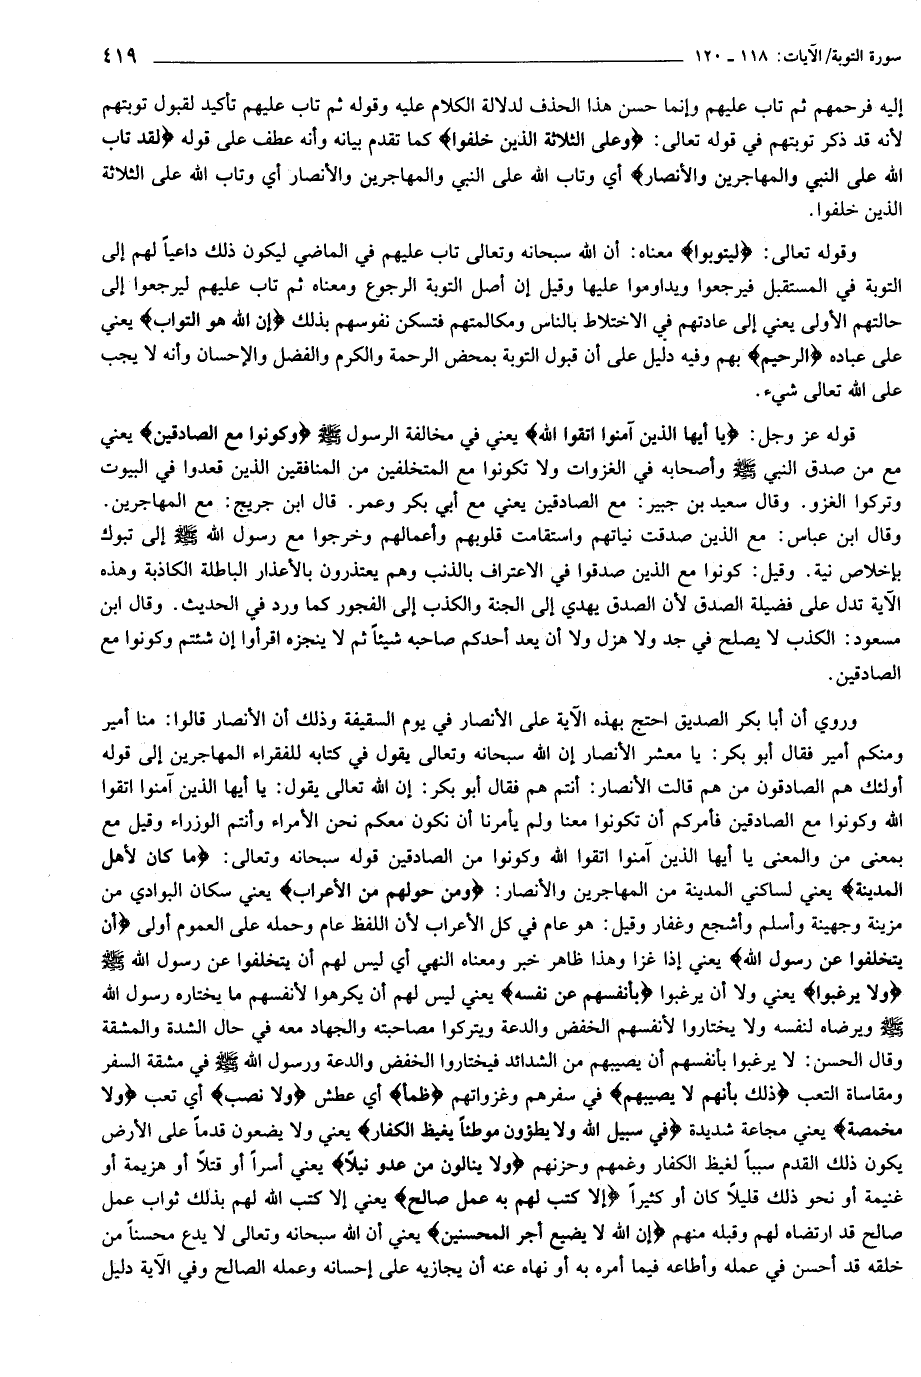 سورة التوبة/ الآيات: ١١٨ ـ ١٢٠ ٤١٩
إليه فرحمهم ثم تاب عليهم وإنما حسن هذا الحذف لدلالة الكلام عليه وقوله ثم تاب عليهم تأكيد لقبول توبتهم
لأنه قد ذكر توبتهم في قوله تعالى: ﴿وعلى الثلاثة الذين خلفوا﴾ كما تقدم بيانه وأنه عطف على قوله ﴿لقد تاب
الله على النبي والمهاجرين والأنصار﴾ أي وتاب الله على النبي والمهاجرين والأنصار أي وتاب الله على الثلاثة
الذين خلفوا.
وقوله تعالى: ﴿ليتوبوا﴾ معناه: أن الله سبحانه وتعالى تاب عليهم في الماضي ليكون ذلك داعياً لهم إلى
التوبة في المستقبل فيرجعوا ويداوموا عليها وقيل إن أصل التوبة الرجوع ومعناه ثم تاب عليهم ليرجعوا إلى
حالتهم الأولى يعني إلى عادتهم في الاختلاط بالناس ومكالمتهم فتسكن نفوسهم بذلك ﴿إن الله هو التواب﴾ يعني
على عباده ﴿الرحيم﴾ بهم وفيه دليل على أن قبول التوبة بمحض الرحمة والكرم والفضل والإحسان وأنه لا يجب
على الله تعالى شيء.
قوله عز وجل: ﴿يا أيها الذين آمنوا اتقوا الله﴾ يعني في مخالفة الرسول ﷺ ﴿وكونوا مع الصادقين﴾ يعني
مع من صدق النبي ﷺ وأصحابه في الغزوات ولا تكونوا مع المتخلفين من المنافقين الذين قعدوا في البيوت
وتركوا الغزو. وقال سعيد بن جبير: مع الصادقين يعني مع أبي بكر وعمر. قال ابن جريج: مع المهاجرين.
وقال ابن عباس: مع الذين صدقت نياتهم واستقامت قلوبهم وأعمالهم وخرجوا مع رسول الله ﷺ إلى تبوك
بإخلاص نية. وقيل: كونوا مع الذين صدقوا في الاعتراف بالذنب وهم يعتذرون بالأعذار الباطلة الكاذبة وهذه
الآية تدل على فضيلة الصدق لأن الصدق يهدي إلى الجنة والكذب إلى الفجور كما ورد في الحديث. وقال ابن
مسعود: الكذب لا يصلح في جد ولا هزل ولا أن يعد أحدكم صاحبه شيئاً ثم لا ينجزه اقرأوا إن شئتم وكونوا مع
الصادقين.
وروي أن أبا بكر الصديق احتج بهذه الآية على الأنصار في يوم السقيفة وذلك أن الأنصار قالوا: منا أمير
ومنكم أمير فقال أبو بكر: يا معشر الأنصار إن الله سبحانه وتعالى يقول في كتابه للفقراء المهاجرين إلى قوله
أولئك هم الصادقون من هم قالت الأنصار: أنتم هم فقال أبو بكر: إن الله تعالى يقول: يا أيها الذين آمنوا اتقوا
الله وكونوا مع الصادقين فأمركم أن تكونوا معنا ولم يأمرنا أن نكون معكم نحن الأمراء وأنتم الوزراء وقيل مع
بمعنى من والمعنى يا أيها الذين آمنوا اتقوا الله وكونوا من الصادقين قوله سبحانه وتعالى: ﴿ما كان لأهل
المدينة﴾ يعني لساكني المدينة من المهاجرين والأنصار: ﴿ومن حولهم من الأعراب﴾ يعني سكان البوادي من
مزينة وجهينة وأسلم وأشجع وغفار وقيل: هو عام في كل الأعراب لأن اللفظ عام وحمله على العموم أولى ﴿أن
يتخلفوا عن رسول الله﴾ يعني إذا غزا وهذا ظاهر خبر ومعناه النهي أي ليس لهم أن يتخلفوا عن رسول الله ﷺ
﴿ولا يرغبوا﴾ يعني ولا أن يرغبوا ﴿بأنفسهم عن نفسه﴾ يعني ليس لهم أن يكرهوا لأنفسهم ما يختاره رسول الله
ﷺ ويرضاه لنفسه ولا يختاروا لأنفسهم الخفض والدعة ويتركوا مصاحبته والجهاد معه في حال الشدة والمشقة
وقال الحسن: لا يرغبوا بأنفسهم أن يصيبهم من الشدائد فيختاروا الخفض والدعة ورسول الله ﷺ في مشقة السفر
ومقاساة التعب ﴿ذلك بأنهم لا يصيبهم﴾ في سفرهم وغزواتهم ﴿ظمأ﴾ أي عطش ﴿ولا نصب﴾ أي تعب ﴿ولا
مخمصة﴾ يعني مجاعة شديدة ﴿في سبيل الله ولا يطؤون موطئاً يغيظ الكفار﴾ يعني ولا يضعون قدماً على الأرض
يكون ذلك القدم سبباً لغيظ الكفار وغمهم وحزنهم ﴿ولا ينالون من عدو نيلاً﴾ يعني أسراً أو قتلاً أو هزيمة أو
غنيمة أو نحو ذلك قليلاً كان أو كثيراً ﴿إلا كتب لهم به عمل صالح﴾ يعني إلا كتب الله لهم بذلك ثواب عمل
صالح قد ارتضاه لهم وقبله منهم ﴿إن الله لا يضيع أجر المحسنين﴾ يعني أن الله سبحانه وتعالى لا يدع محسناً من
خلقه قد أحسن في عمله وأطاعه فيما أمره به أو نهاه عنه أن يجازيه على إحسانه وعمله الصالح وفي الآية دليل